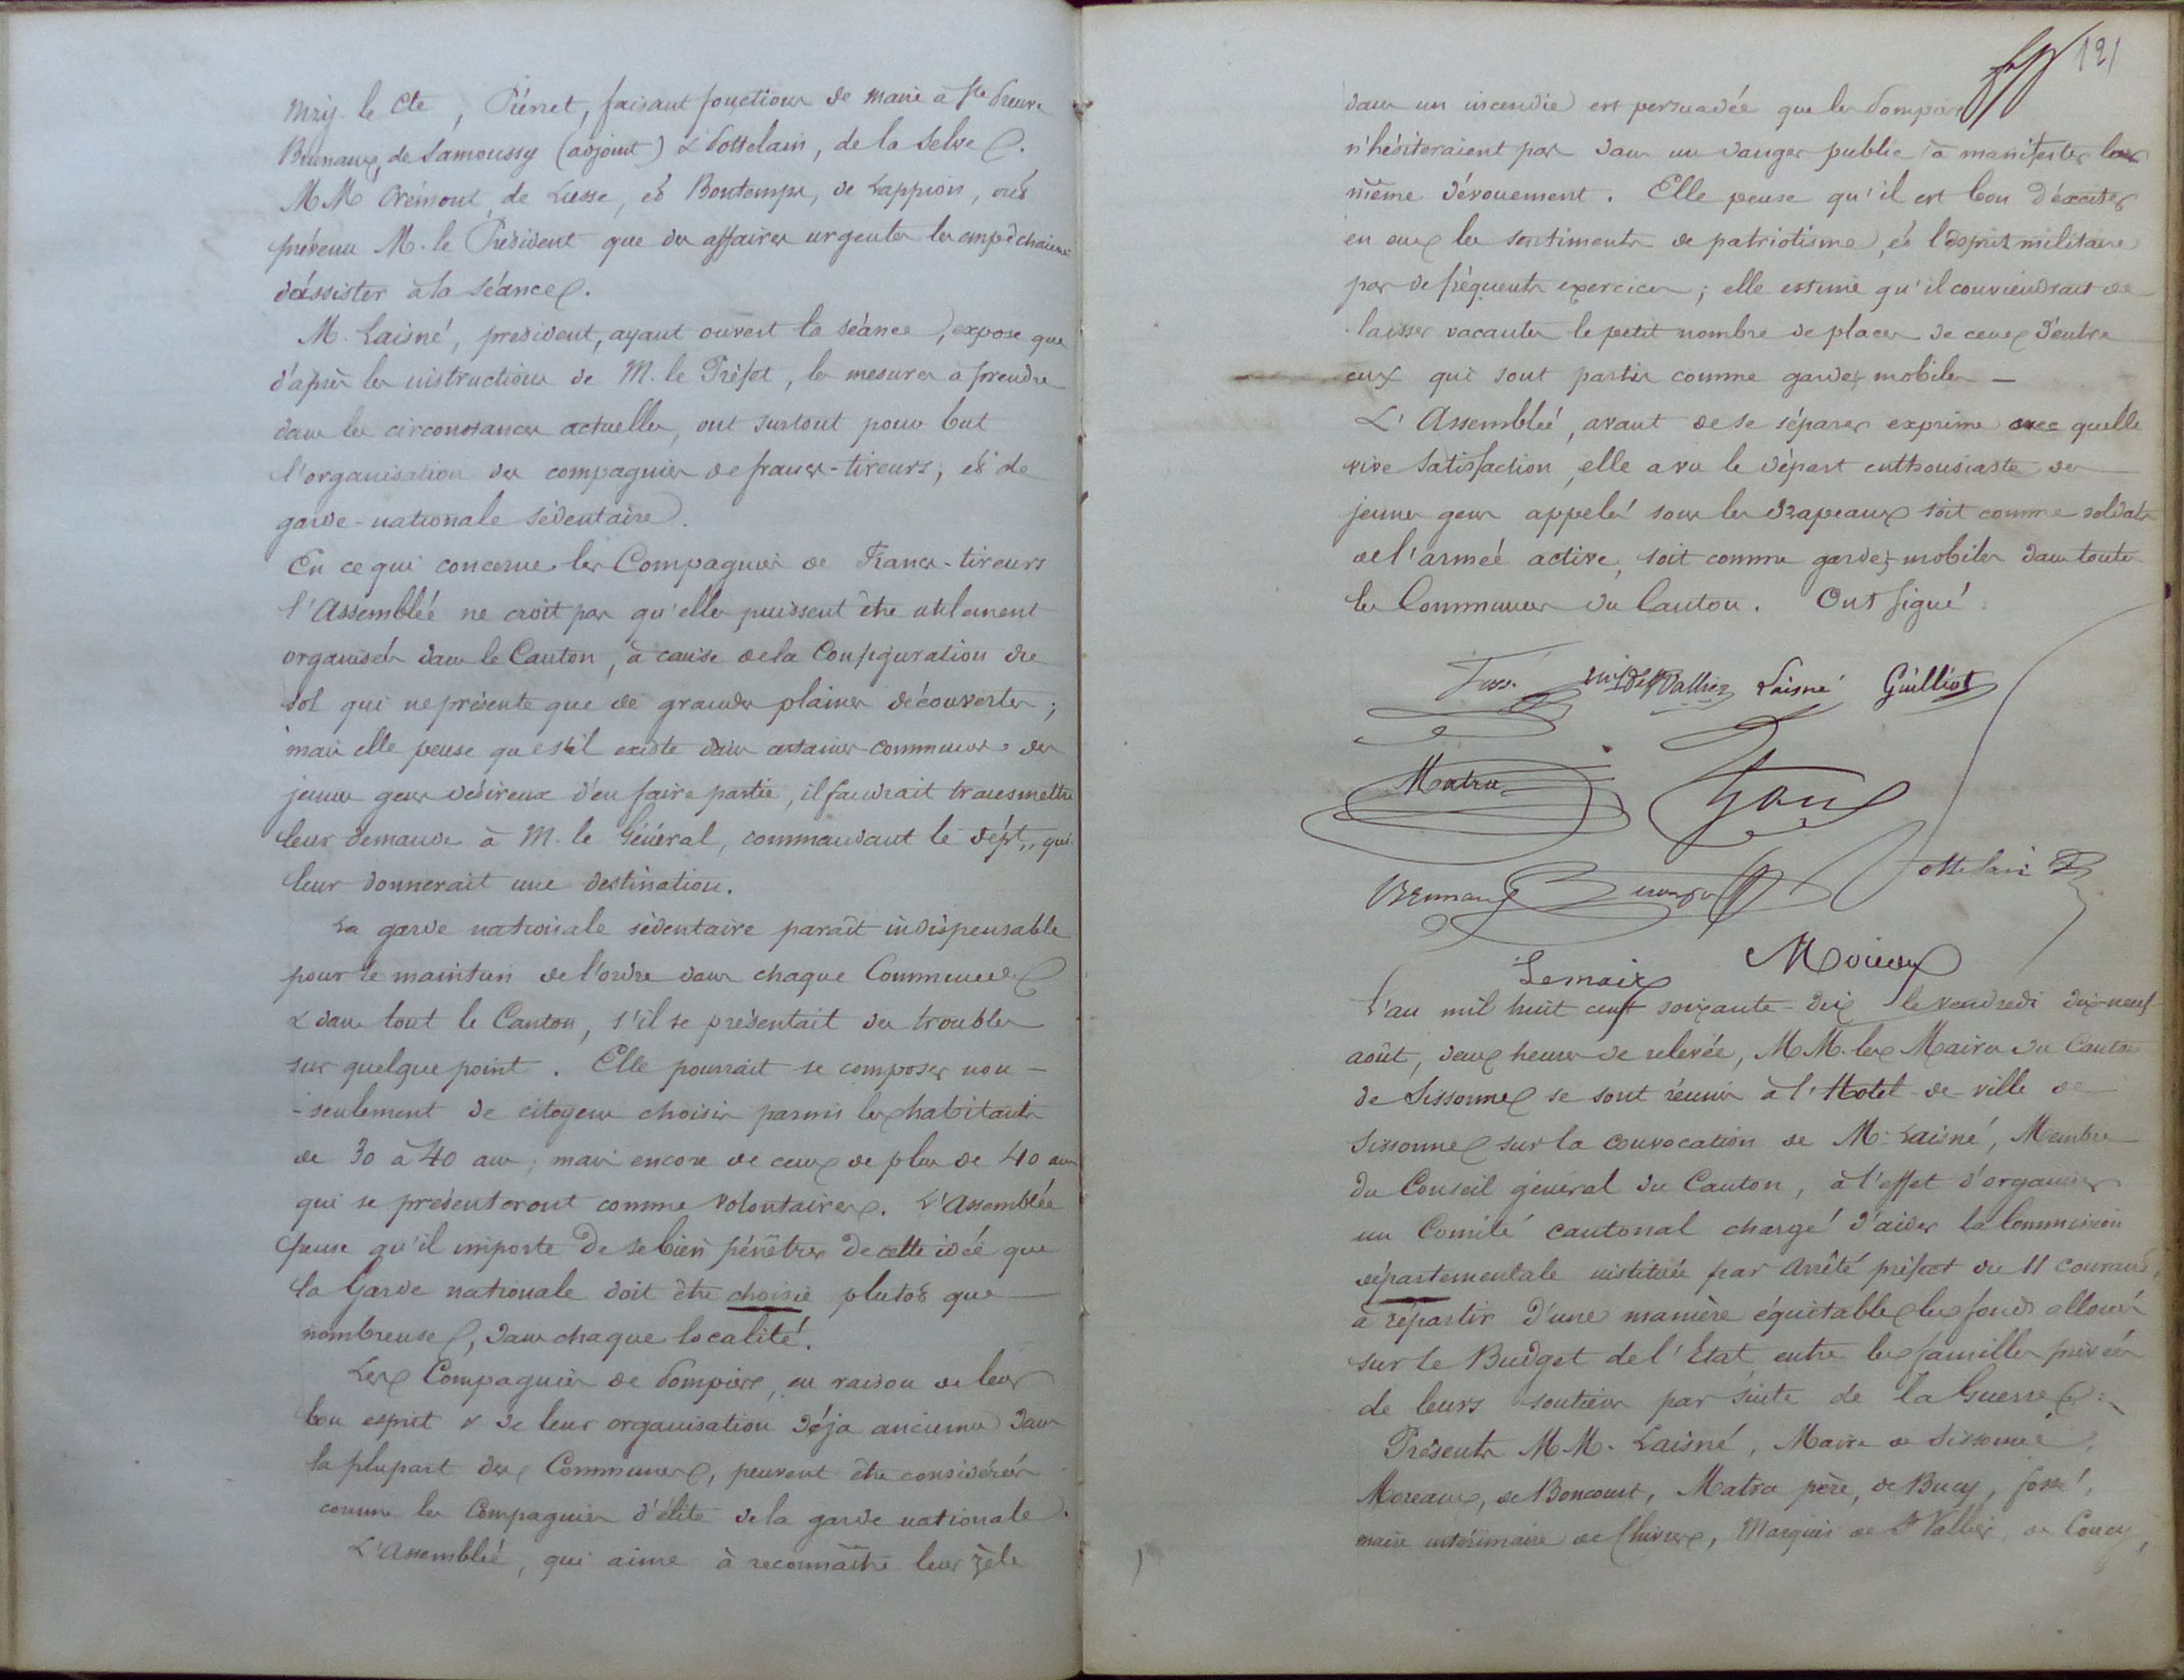 Mzij. le Cte, Piénet, faisant fonctions de maire à Ste Preuve
Brunaux, de Samoussy (adjoint) & Pottelain, de la Selve.
MM Crémont, de Liesse, et Bontemps, de Lappion, ont
prévenu M. le Président que des affaires urgentes les empêchaient
d'assister à la séance.
M. Laisné, président, ayant ouvert la séance, expose que
d'après les instructions de M. le Préfet, les mesures à prendre
dans les circonstances actuelles, ont surtout pour but
l'organisation des compagnies de francs-tireurs, et de
garde-nationale sédentaire.
En ce qui concerne les Compagnies de Francs-tireurs
l'Assemblée ne croit pas qu'elles puissent être utilement
organisées dans le Canton, à cause de la Configuration du
sol qui ne présente que de grandes plaines découvertes ;
mais elle pense que s'il existe dans certaines communes des
jeunes gens désireux d'en faire partie, il faudrait transmettre
leur demande à M. le Général, commandant le dépt, qui
leur donnerait une destination.
La garde nationale sédentaire paraît indispensable
pour le maintien de l'ordre dans chaque Commune
& dans tout le Canton, s'il se présentait des troubles
sur quelque point. Elle pourrait se composer non-
-seulement de citoyens choisis parmis les habitants
de 30 à 40 ans, mais encore de ceux de plus de 40 ans
qui se présenteront comme volontaires. L'Assemblée
pense qu'il importe de se bien pénétrer de cette idée que
la Garde nationale doit être choisie plutôt que
nombreuse, dans chaque localité.
Les Compagnies de Pompiers, en raison de leur
bon esprit & de leur organisation déjà ancienne dans
la plupart des Communes, peuvent être considérées
comme les Compagnies d'élite de la garde nationale.
L'Assemblée, qui aime à reconnaître leur zèle
121
dans un incendie est persuadée que les Pompiers
n'hésiteraient pas dans un danger public à manifester leur
même dévouement. Elle pense qu'il est bon d'exciter
en eux les sentiments de patriotisme, et l'esprit militaire
par de fréquents exercices ; elle estime qu'il conviendrait de
laisser vacantes le petit nombre de places de ceux d'entre
eux qui sont partis comme gardes mobiles —
L'Assemblée, avant de se séparer exprime avec quelle
vive satisfaction, elle a vu le départ enthousiaste des
jeunes gens appelés sous les drapeaux soit comme soldats
de l'armée active, soit comme gardes-mobiles dans toutes
les Communes du Canton. Ont signé :
Fossé Mis de St Vallier Laisné Guilliot
Matra
Brunaux Pottelain
Lemaire Moreaux
L'an mil huit cent soixante-dix le vendredi dix-neuf
août, deux heures de relevée, MM. les Maires du Canton
de Sissonne se sont réunis à l'Hotel-de-ville de
Sissonne sur la convocation de M. Laisné, Membre
du Conseil général du Canton, à l'effet d'organiser
un Comité cantonal chargé d'aider la Commission
départementale instituée par Arrêté préfect du 11 courant,
à répartir d'une manière équitable les fonds alloués
sur le Budget de l'Etat entre les familles privées
de leurs soutiens par suite de la Guerre :
Présents MM. Laisné, Maire de Sissonne,
Moreaux, de Boncourt, Matra père, de Bucy, fossé,
maire intérimaire de Chivres, Marquis de St Vallier, de Coucy,